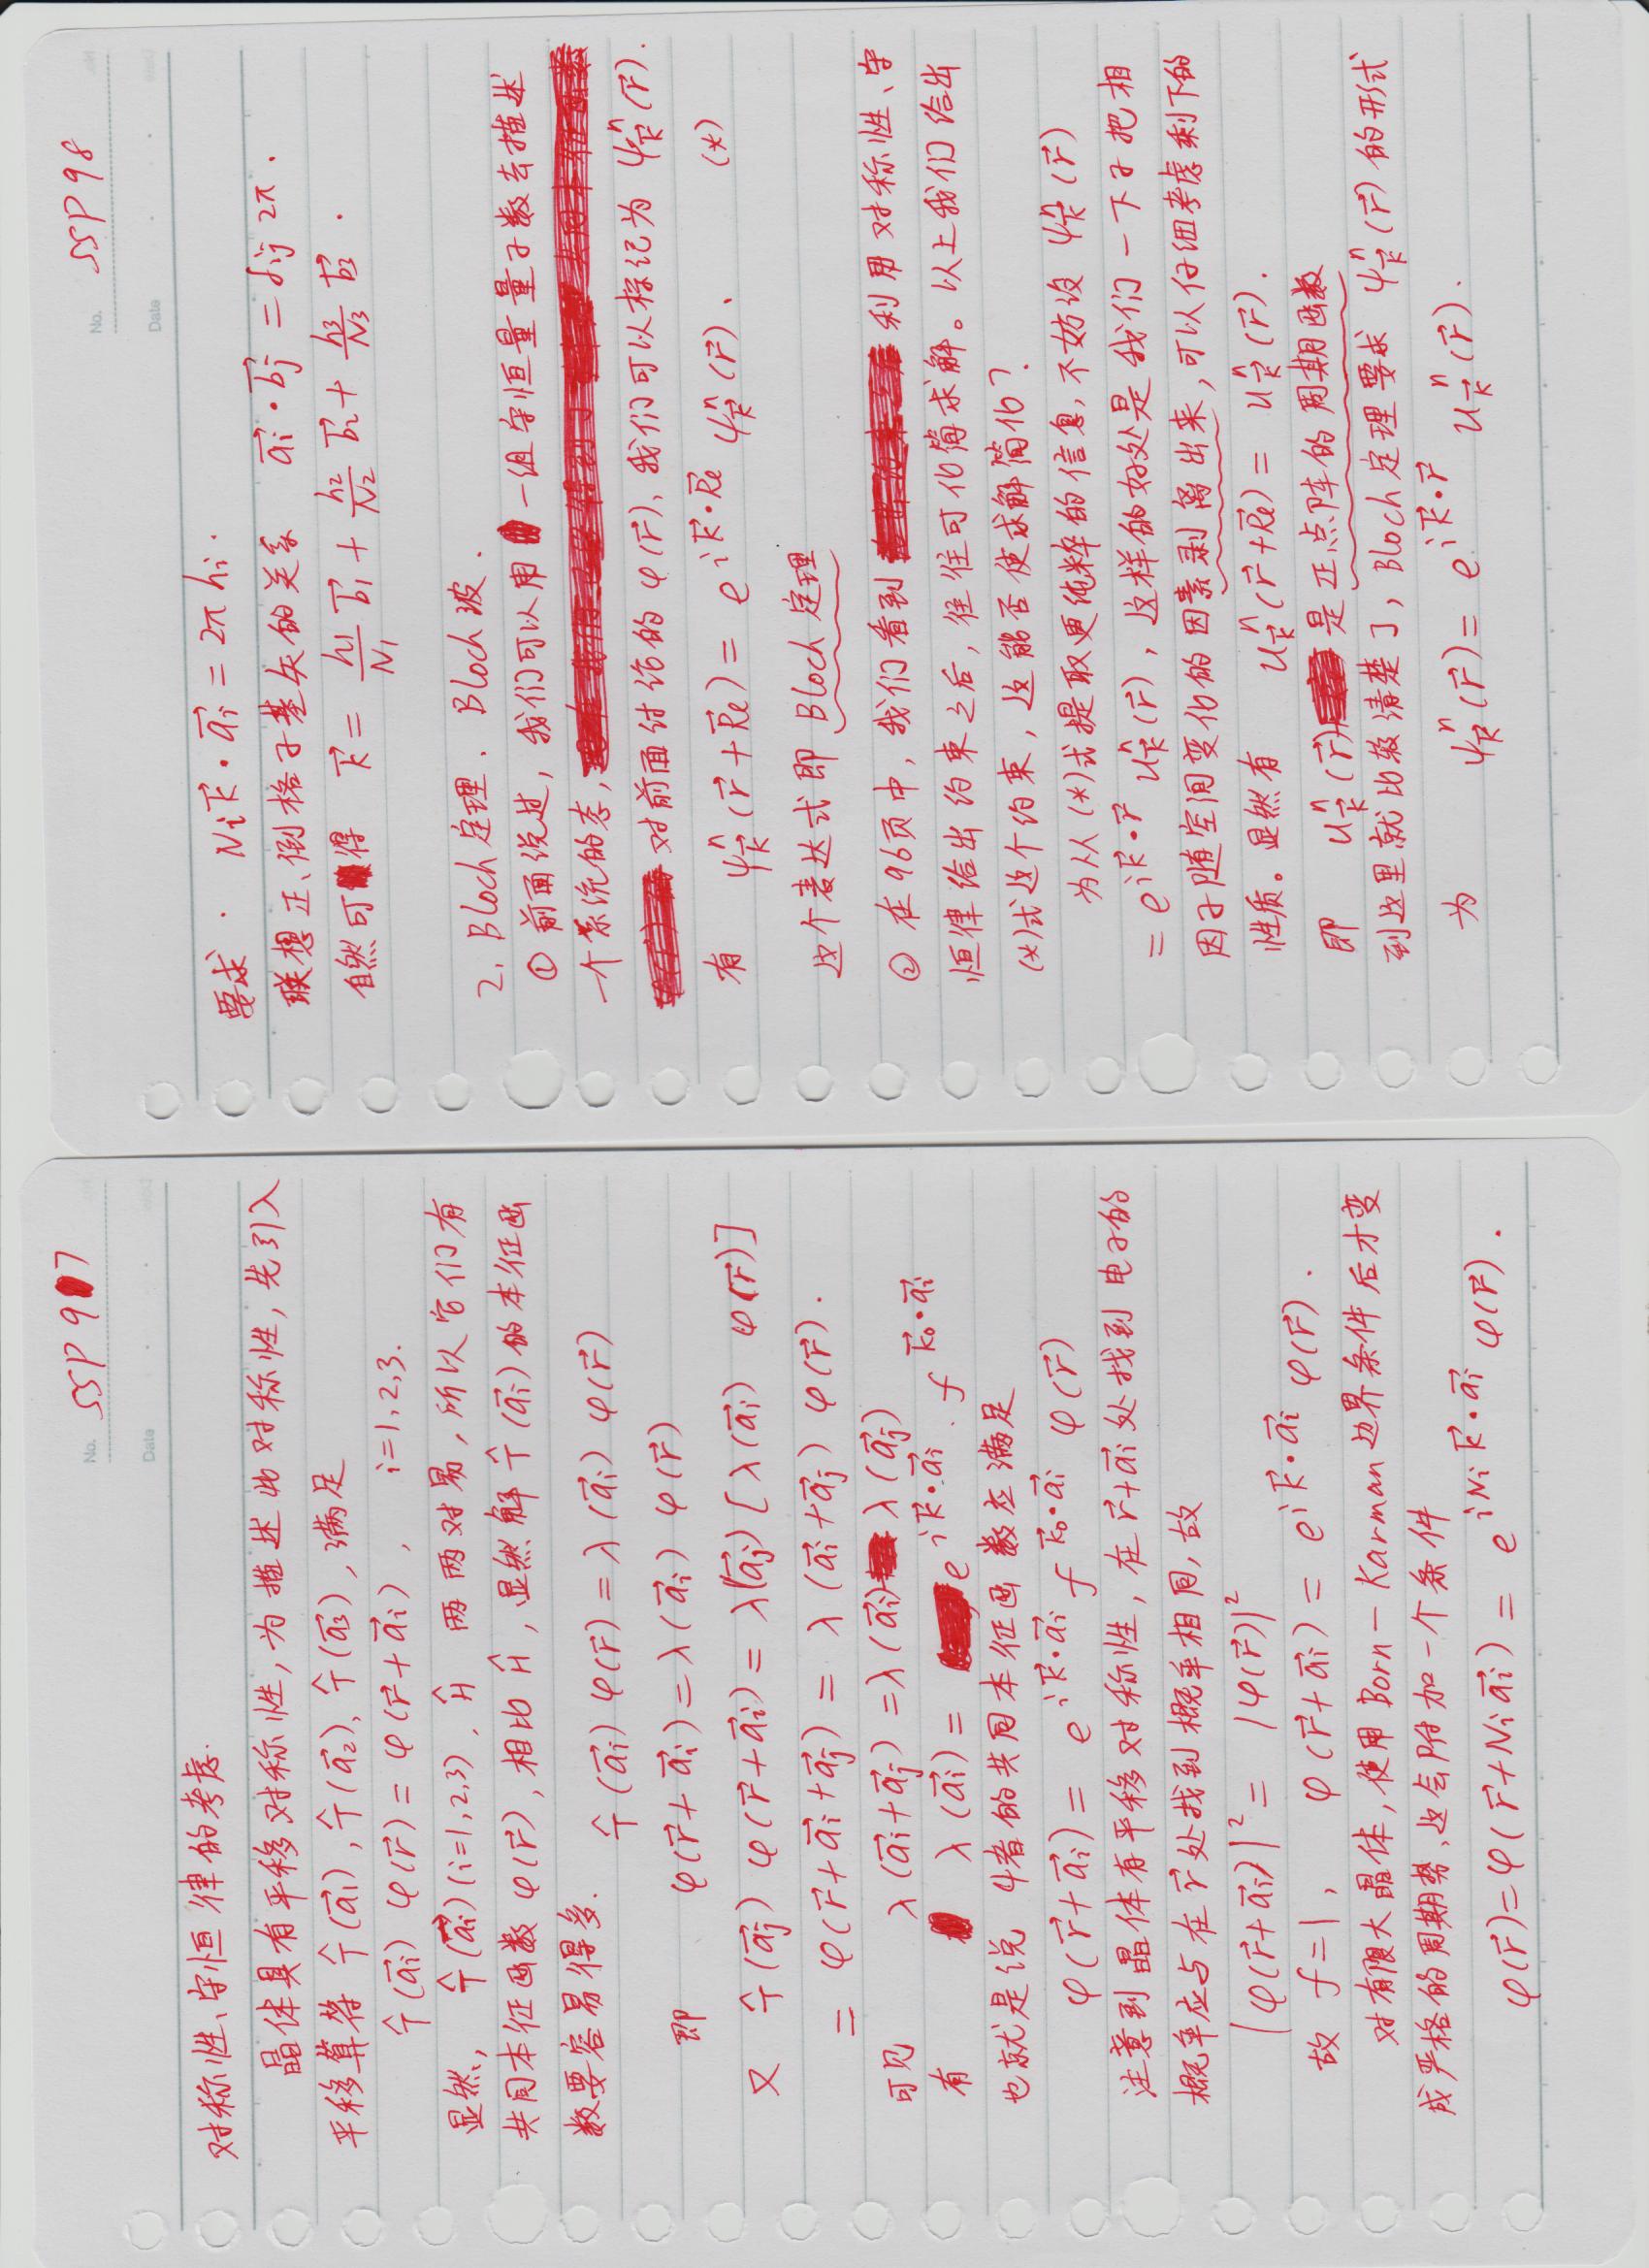 No. SSP 97
Date
对称性、守恒律的考虑.
晶体具有平移对称性,为描述此对称性,先引入
平移算符 T̂(a⃗₁), T̂(a⃗₂), T̂(a⃗₃), 满足
T̂(a⃗ᵢ) φ(r⃗) = φ(r⃗+a⃗ᵢ), i=1,2,3.
显然, T̂(a⃗ᵢ)(i=1,2,3), Ĥ 两两对易,所以它们有
共同本征函数 φ(r⃗), 相比 Ĥ, 显然解 T̂(a⃗ᵢ) 的本征函
数要容易得多.
T̂(a⃗ᵢ) φ(r⃗) = λ(a⃗ᵢ) φ(r⃗)
即 φ(r⃗+a⃗ᵢ) = λ(a⃗ᵢ) φ(r⃗)
又 T̂(a⃗ⱼ) φ(r⃗+a⃗ᵢ) = λ(a⃗ⱼ) [λ(a⃗ᵢ) φ(r⃗)]
= φ(r⃗+a⃗ᵢ+a⃗ⱼ) = λ(a⃗ᵢ+a⃗ⱼ) φ(r⃗).
可见 λ(a⃗ᵢ+a⃗ⱼ) = λ(a⃗ᵢ) λ(a⃗ⱼ)
有 λ(a⃗ᵢ) = e^{ik⃗·a⃗ᵢ} · f^{k⃗₀·a⃗ᵢ}
也就是说 4者的共同本征函数应满足
φ(r⃗+a⃗ᵢ) = e^{ik⃗·a⃗ᵢ} f^{k⃗₀·a⃗ᵢ} φ(r⃗)
注意到晶体有平移对称性, 在 r⃗+a⃗ᵢ 处找到电子的
概率应与在 r⃗ 处找到概率相同, 故
|φ(r⃗+a⃗ᵢ)|² = |φ(r⃗)|²
故 f=1, φ(r⃗+a⃗ᵢ) = e^{ik⃗·a⃗ᵢ} φ(r⃗).
对有限大晶体, 使用 Born－Karman 边界条件后才变
成严格的周期势、这会附加一个条件
φ(r⃗)=φ(r⃗+Nᵢa⃗ᵢ) = e^{iNᵢk⃗·a⃗ᵢ} φ(r⃗).
No. SSP 98
Date
要求. Nᵢk⃗·a⃗ᵢ = 2π hᵢ.
联想正、倒格子基矢的关系 a⃗ᵢ·b⃗ⱼ = δᵢⱼ 2π.
自然可得 k⃗ = h₁/N₁ b⃗₁ + h₂/N₂ b⃗₂ + h₃/N₃ b⃗₃.
2. Bloch 定理. Bloch 波.
① 前面说过, 我们可以用一组守恒量量子数去描述
一个系统的态,
对前面讨论的 φ(r⃗), 我们可以标记为 ψⁿ_k⃗(r⃗).
有 ψⁿ_k⃗(r⃗+R⃗ₑ) = e^{ik⃗·R⃗ₑ} ψⁿ_k⃗(r⃗). (*)
这个表达式即 Bloch 定理
② 在96页中, 我们看到利用对称性、守
恒律给出约束之后, 往往可化简求解。以上我们给出
(*)式这个约束, 这能否使求解简化?
为从(*)式提取更纯粹的信息, 不妨设 ψⁿ_k⃗(r⃗)
= e^{ik⃗·r⃗} uⁿ_k⃗(r⃗), 这样的好处是我们一下子把相
因子随空间变化的因素剥离出来, 可以仔细考虑剩下的
性质。显然有 uⁿ_k⃗(r⃗+R⃗ₑ) = uⁿ_k⃗(r⃗).
即 uⁿ_k⃗(r⃗) 是正点阵的周期函数
到这里就比较清楚了, Bloch 定理要求 ψⁿ_k⃗(r⃗) 的形式
为 ψⁿ_k⃗(r⃗) = e^{ik⃗·r⃗} uⁿ_k⃗(r⃗).